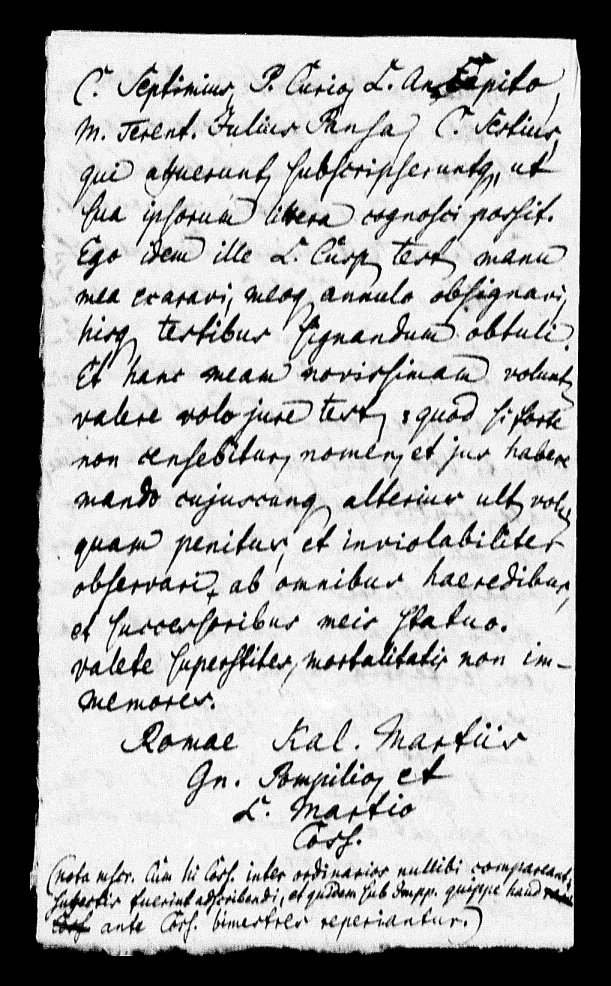 C. Septimius, P. Curio, L. An. Capito,
M. Terent. Julius Pansa, C. Sestius,
qui afuerunt, subscripseruntq, ut
sua ipsorum littera cognosci possit.
Ego idem ille L. Cusp, test, manu
mea exaravi, meoq annulo obsignavi,
hisq testibus signandum obtuli.
Et hanc meam novissimam volunt,
valere volo jure test, : quod si forte
non censebitur, nomen, et jus habere
mando cujuscunq alterius ult, vol,
quam penitus, et inviolabiliter
observari, ab omnibus haeredibus,
et successoribus meis statuo.
valete superstites, mortalitatis non im-
memores.
Romae Kal. Martiis
Gn. Pompilio, et
L. Martio
Coss.
(nota mscr. Cum hi Coss. inter ordinarios nullibi compareant,
fuerint adscribendi, et quidem sub Impp. quippe haud
ante Coss. bimestres reperiantur.)